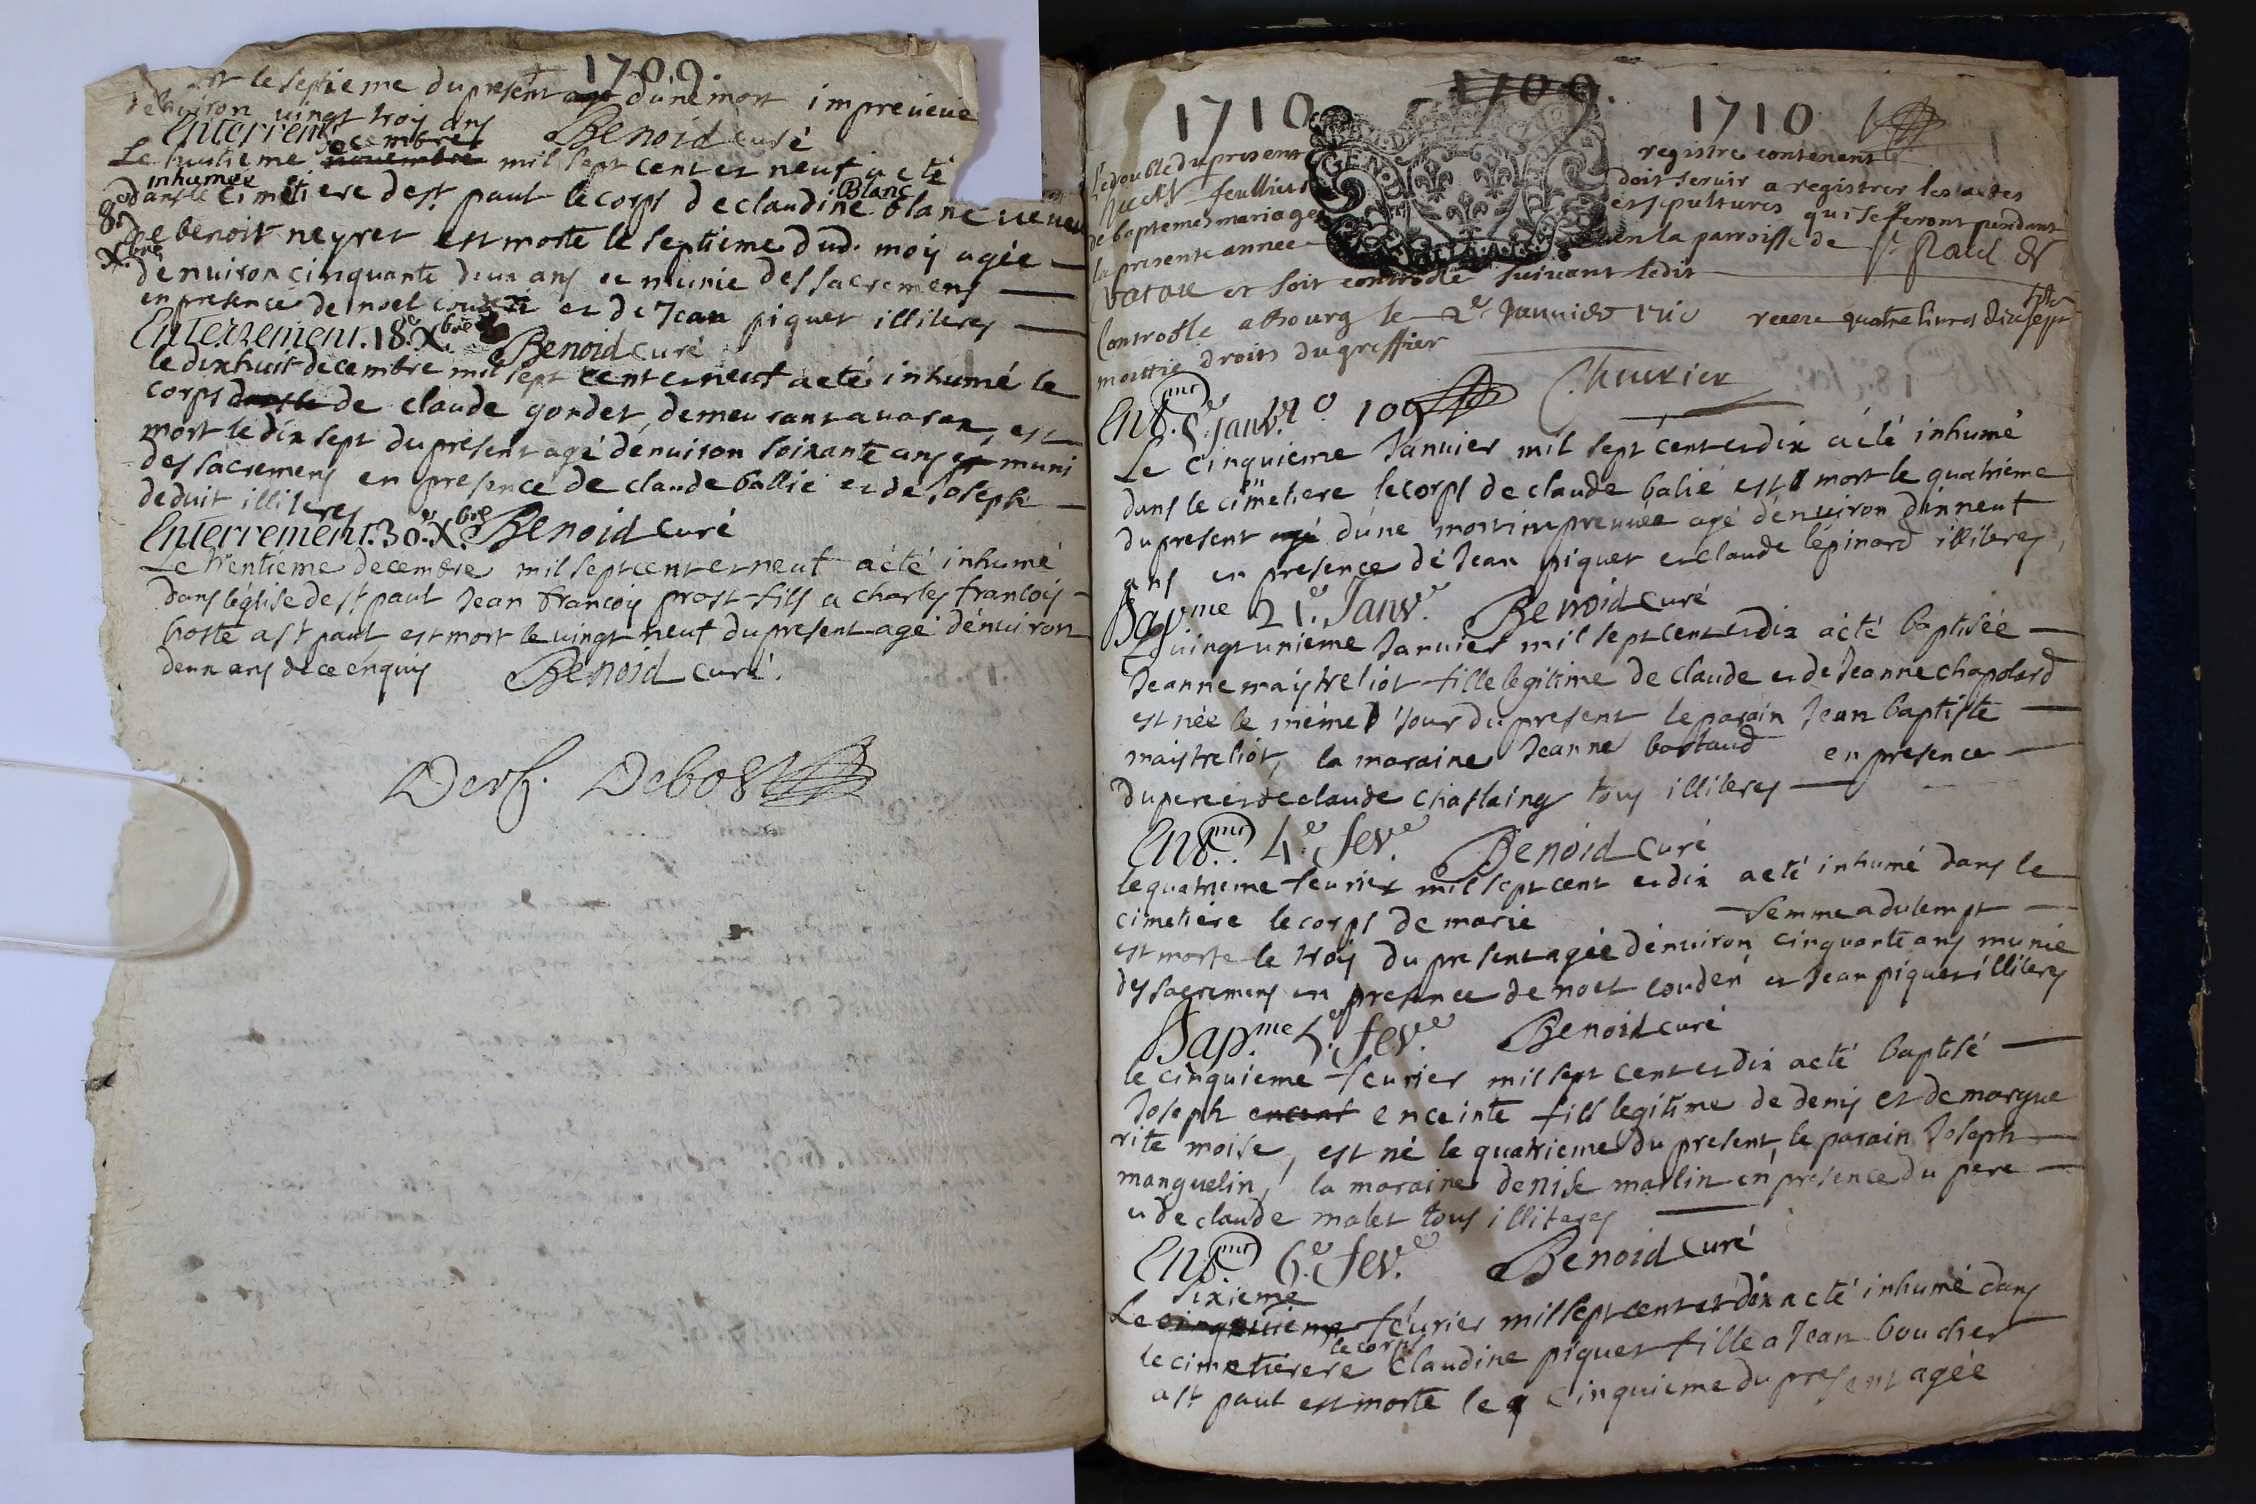 1709.
est le septieme du present agé d'une mort impreveüe
d'environ vingt troy ans
Enterrem.t Benoid curé
decembre
Le huitieme novembre mil sept cent et neuf a eté
inhumée
dans le cimetiere de s.t paul le corps de claudine blanc veuve
Blanc
8.e
X.bre
de benoit neyret est morte le septieme dud. moy agée
d'environ cinquante deux ans et munie des sacremens
en presence de noel et de Jean piquet illiteres
Enterrement. 18.e X.bre Benoid curé
le dixhuit decembre mil sept cent et neuf a eté inhumé le
corps dans le de claude gondet, demeurant a vavan, est
mort le dix sept du present agé d'environ soixante ans et muni
des sacremens en presence de claude ballié et de Joseph
deduit illiteres
Enterrement. 30.e X.bre Benoid curé
Le trentieme decembre mil sept cent et neuf a eté inhumé
dans l'église de s.t paul Jean francoy prost fils a charles francois
hoste a s.t paul est mort le vingt neuf du present agé d'environ
deux ans de ce enquis Benoid curé.
Debost
1709.
1710 1710
GEN
le double du present registre contenent
huect feullies doit servir a registrer les actes
de baptemes mariages et sepultures qui se feront pendant
la presente annee en la parroisse de s.t Paul de
varax et soit controllé suivant ledit
Controlle a bourg le 2.e Janvier 1710 receu quatre livres dix sept
moittie droits du greffier
Chevrier
Ent.mt 5.e Janv. 1710
Le cinquieme Janvier mil sept cent et dix a été inhumé
dans le cimetiere le corps de claude balié est mort le quatrieme
du present agé d'une mort impreuvée agé d'environ dixneuf
ans en presence de Jean piquet et claude lépinard illiteres,
Bap.me 21.e Janv.e Benoid curé
Le vingt unieme Janvier mil sept cent et dix a été baptisée
Jeanne maystreliot fille legitime de claude et de Jeanne chapolard
est née le méme Jour du present le parain Jean baptiste
maistreliot, la maraine Jeanne bostaud en presence
du pere et de claude chastaing tous illiteres
Ent.mt 4.e fev.e Benoid curé
le quatrieme fevrier mil sept cent et dix a eté inhumé dans le
cimetiére le corps de marie femme a dulempt
est morte le troy du present agée d'environ cinquante ans munie
des sacremens en presence de noel couder et Jean piquet illiteres
Bap.me 5.e fev.e Benoid curé
le cinquieme fevrier mil sept cent et dix a eté baptisé
Joseph encent enceinte fils legitime de denis et de margue
rite moise, est né le quatrieme du present, le parain Joseph
manguelin, la maraine denise marlin en presence du pere
et de claude malet tous illiteres
Ent.mt 6.e fev.e Benoid curé
sixieme
Le cinquieme fevrier mil sept cent et dix a eté inhumé dans
le corps
le cimetierere claudine piquet fille a Jean boucher
a s.t paul est morte le cinquieme du present agée